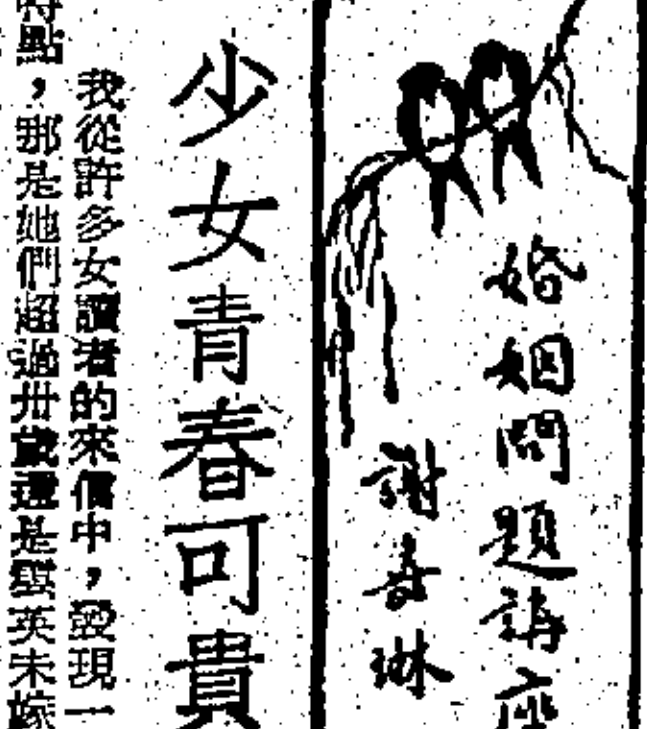 婚姻問題講座
謝春琳
少女青春可貴
我從許多女讀者的來信中，發現一
特點，那是她們超過卅歲還是雲英未嫁